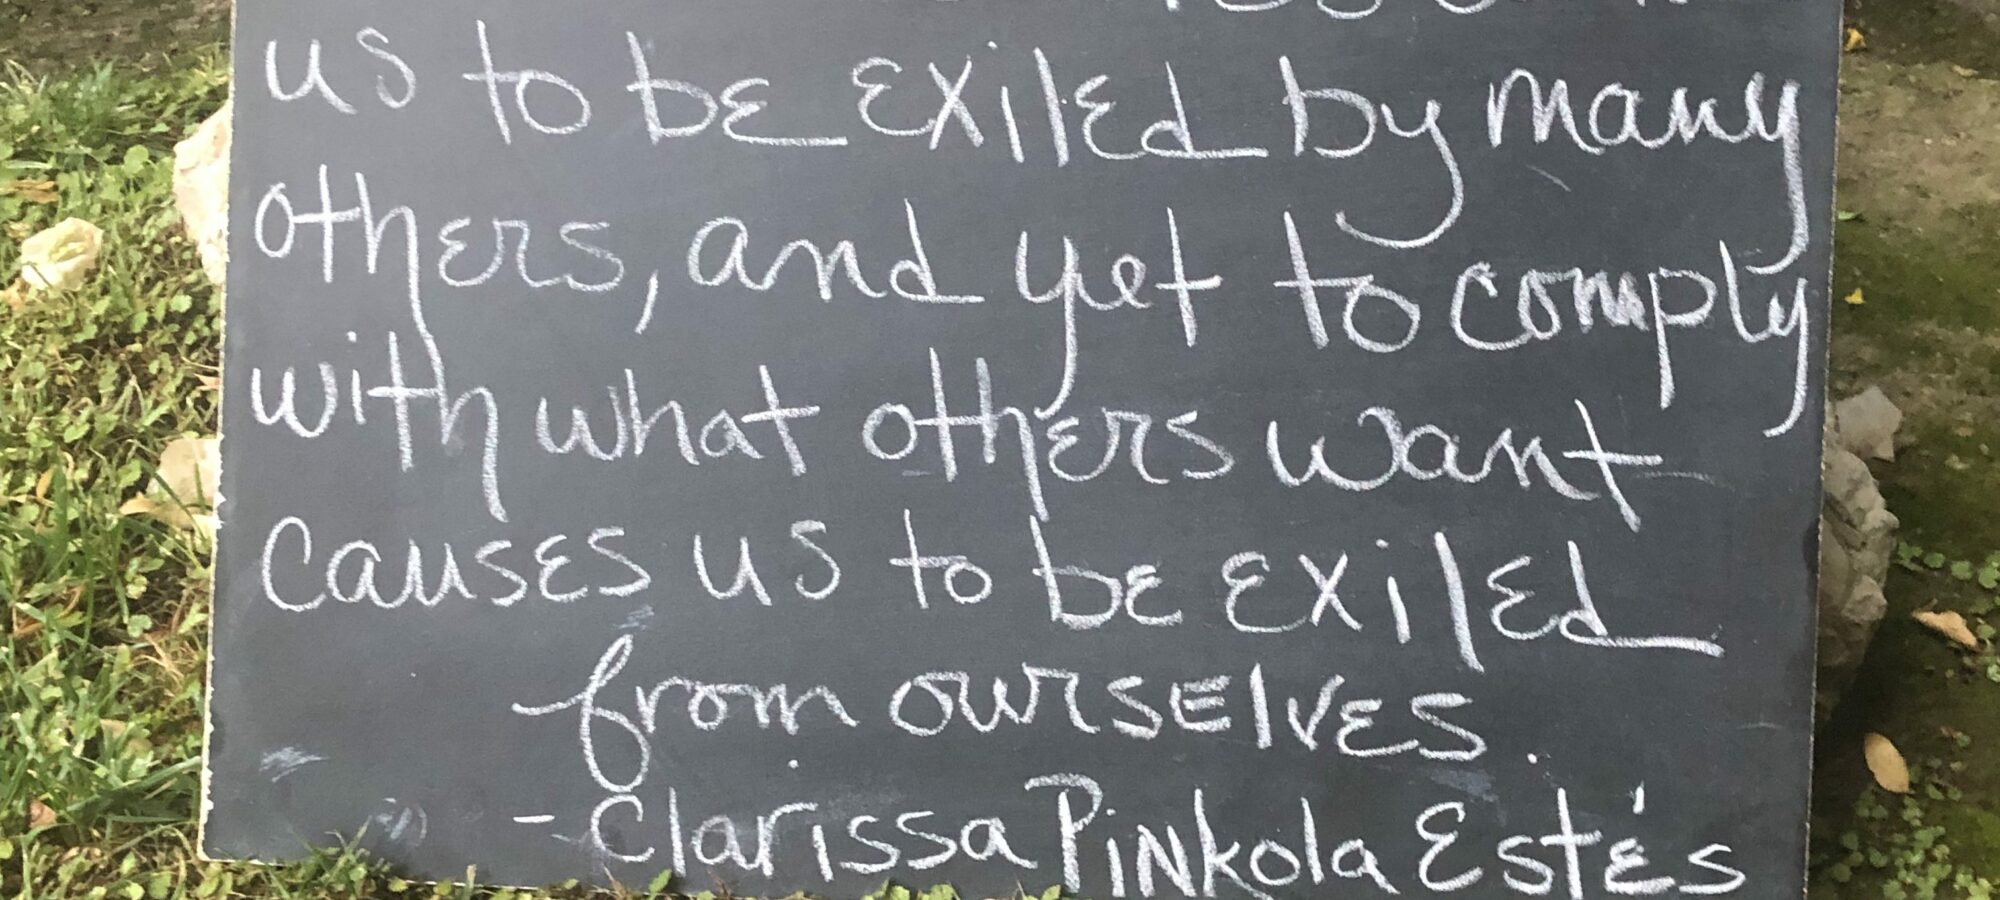 us to be exiled by many
others, and yet to comply
with what others want
causes us to be exiled
from ourselves.
- Clarissa Pinkola Estés